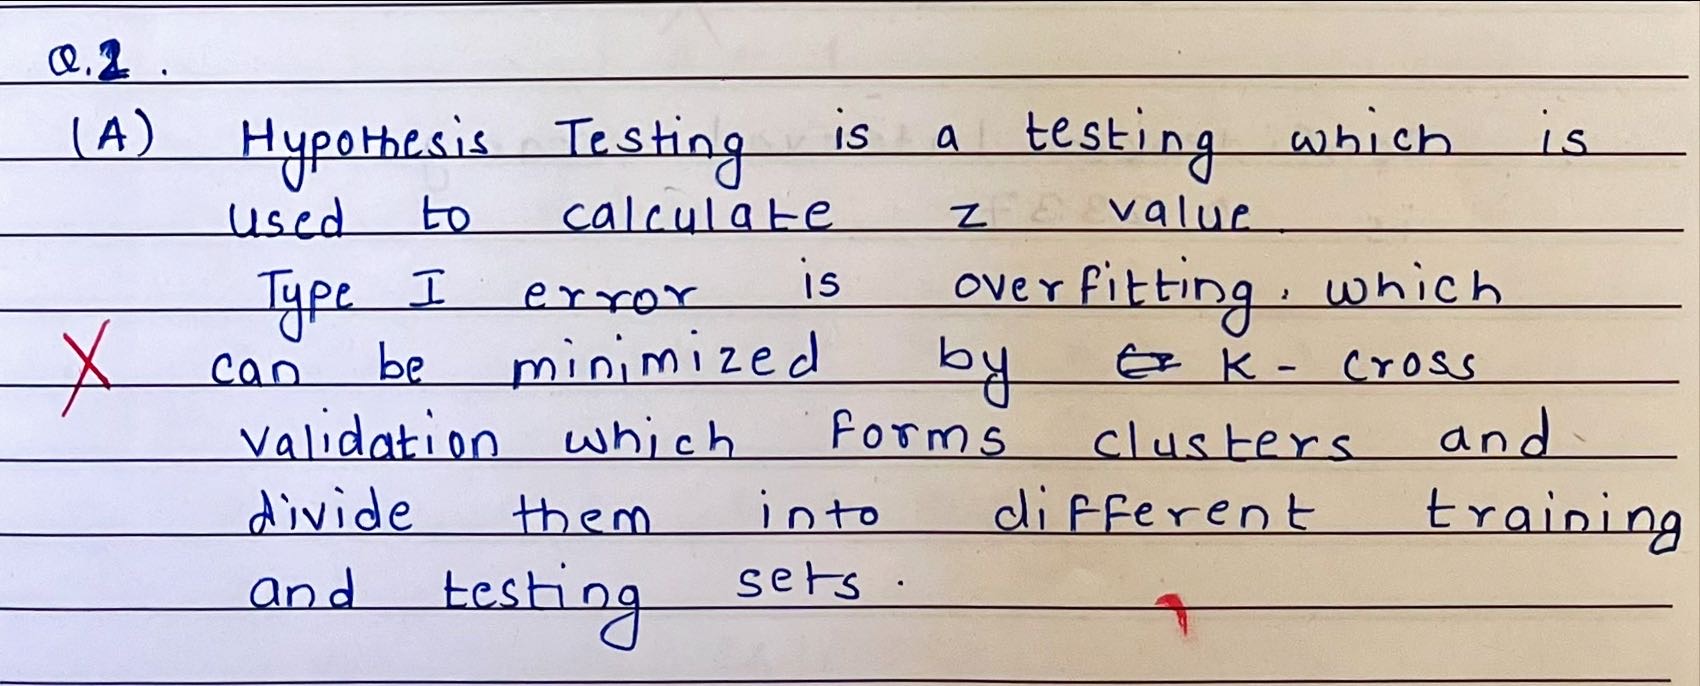 Q.2.
(A) Hypothesis Testing is a testing which is
used to calculate z value.
Type I error is overfitting, which
can be minimized by K- cross
validation which forms clusters and
divide them into different training
and testing sets.